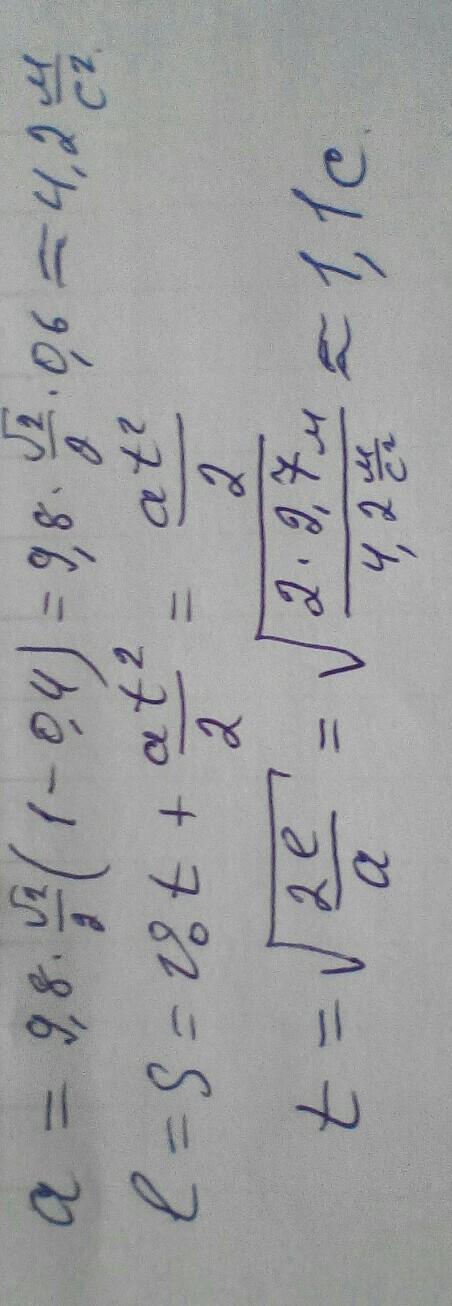 a = 9,8 · √2/2 (1 - 0,4) = 9,8 · √2/2 · 0,6 = 4,2 м/с².
l = S = v₀t + at²/2 = at²/2
t = √(2l/a) = √(2·2,7м / 4,2 м/с²) ≈ 1,1с.